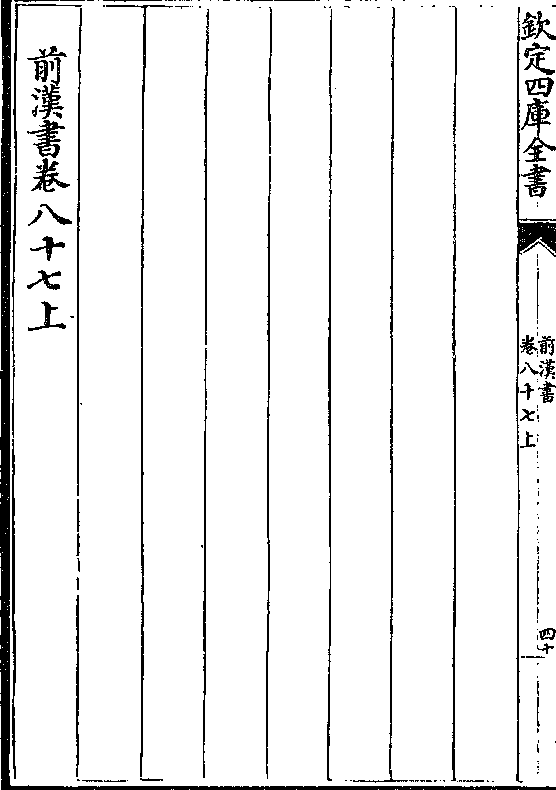 欽定四庫全書
前漢書
卷八十七上
四十
前漢書卷八十七上